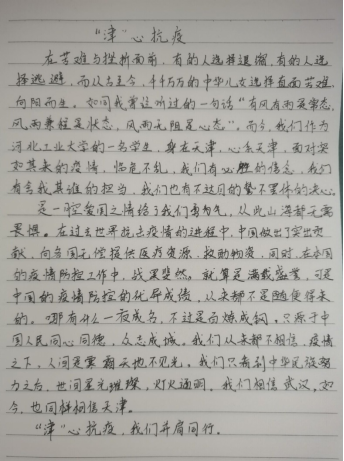 “津”心抗疫
在苦难与挫折面前，有的人选择退缩，有的人选
择逃避，而从古至今，千千万万的中华儿女选择直面苦难，
向阳而生。如同我常这听过的一句话“有风有雨是常态，
风雨兼程是状态，风雨无阻是心态”。而今，我们作为
河北工业大学的一名学生，身在天津，心系天津，面对突
如其来的疫情，临危不乱，我们有必胜的信念，我们
有舍我其谁的担当，我们也有不达目的誓不罢休的决心。
是一腔爱国之情给了我们勇气，从此山海都无需
畏惧。在过去世界抗击疫情的进程中，中国做出了突出贡
献，向各国无偿提供医疗资源、救助物资，同时，在本国
的疫情防控工作中，战果斐然。就算是满载盛誉，可是
中国的疫情防控的优异成绩，从来都不是随便得来
的。哪有什么一夜成名，不过是百炼成钢。只源于中
国人民同心同德，众志成城。我们从来都不相信，疫情
之下，人间是雾霸天地不见光。我们只看到中华民族努
力之后，世间星光璀璨，灯火通明。我们相信武汉，如
今，也同样相信天津。
“津”心抗疫，我们并肩同行。